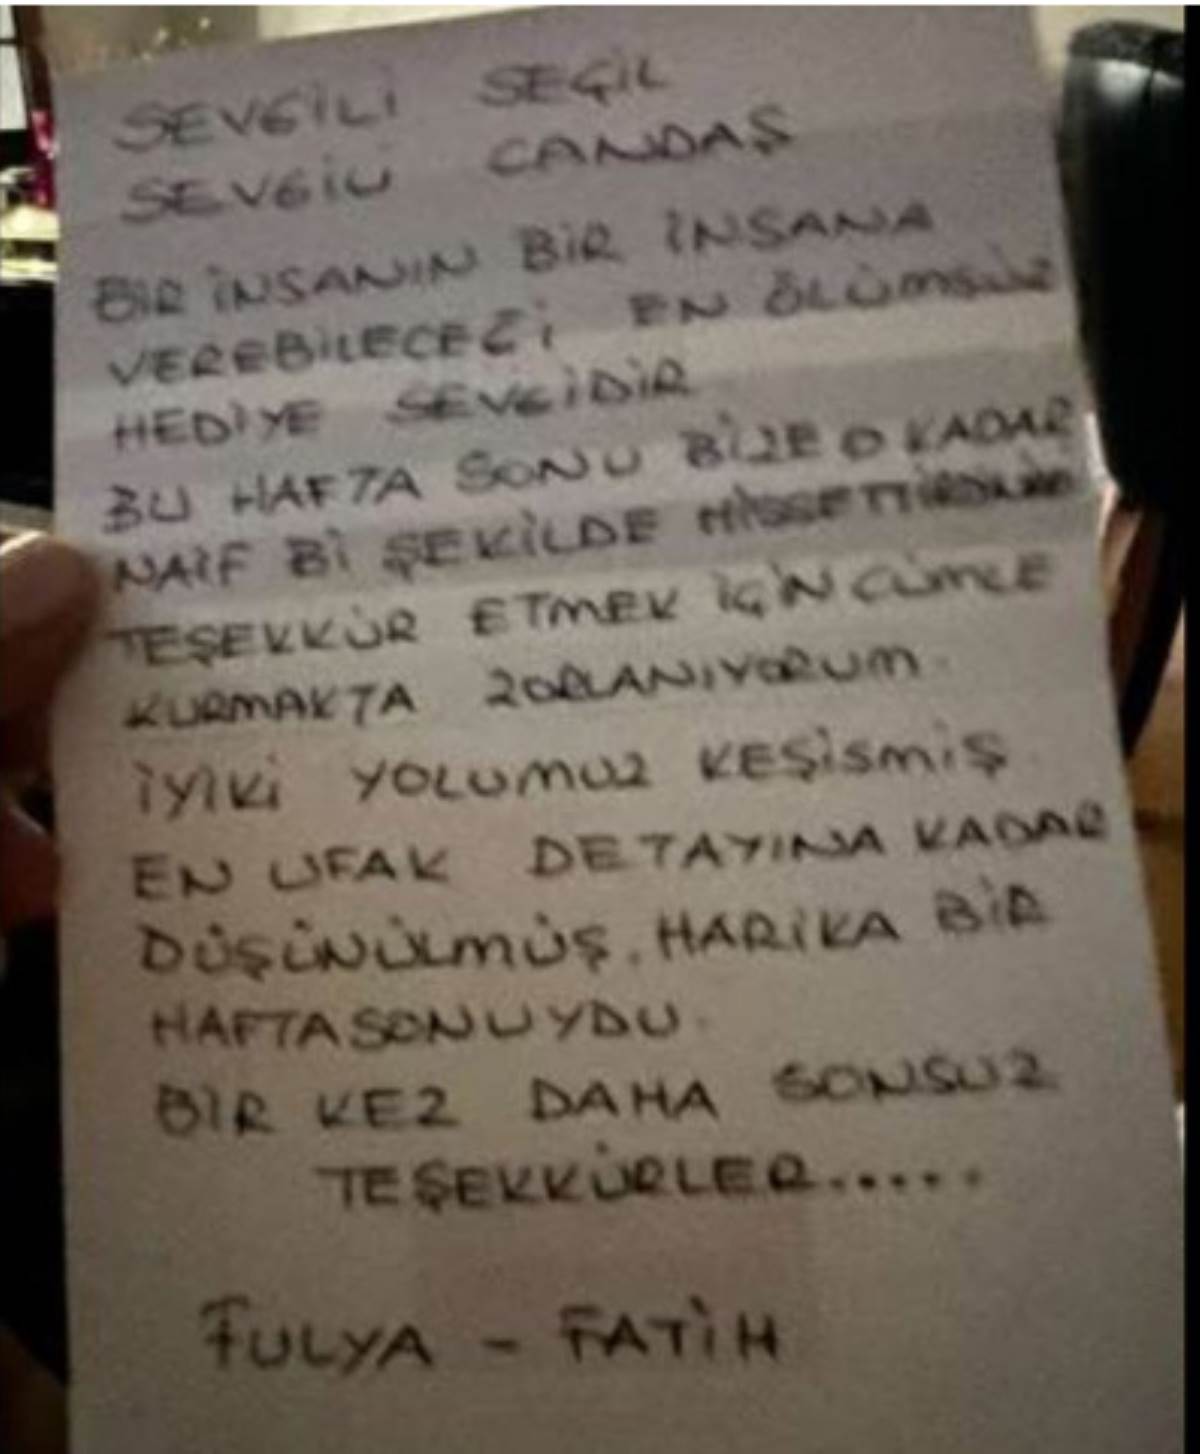 SEVGİLİ SEÇİL
SEVGİLİ CANDAŞ
BİR İNSANIN BİR İNSANA
VEREBİLECEĞİ EN ÖLÜMSÜZ
HEDİYE SEVGİDİR
BU HAFTA SONU BİZE O KADAR
NAİF Bİ ŞEKİLDE
TEŞEKKÜR ETMEK İÇİN CÜMLE
KURMAKTA ZORLANIYORUM.
İYİKİ YOLUMUZ KEŞİSMİŞ
EN UFAK DETAYINA KADAR
DÜŞÜNÜLMÜŞ. HARİKA BİR
HAFTASONUYDU.
BİR KEZ DAHA SONSUZ
TEŞEKKÜRLER.....
FULYA - FATİH